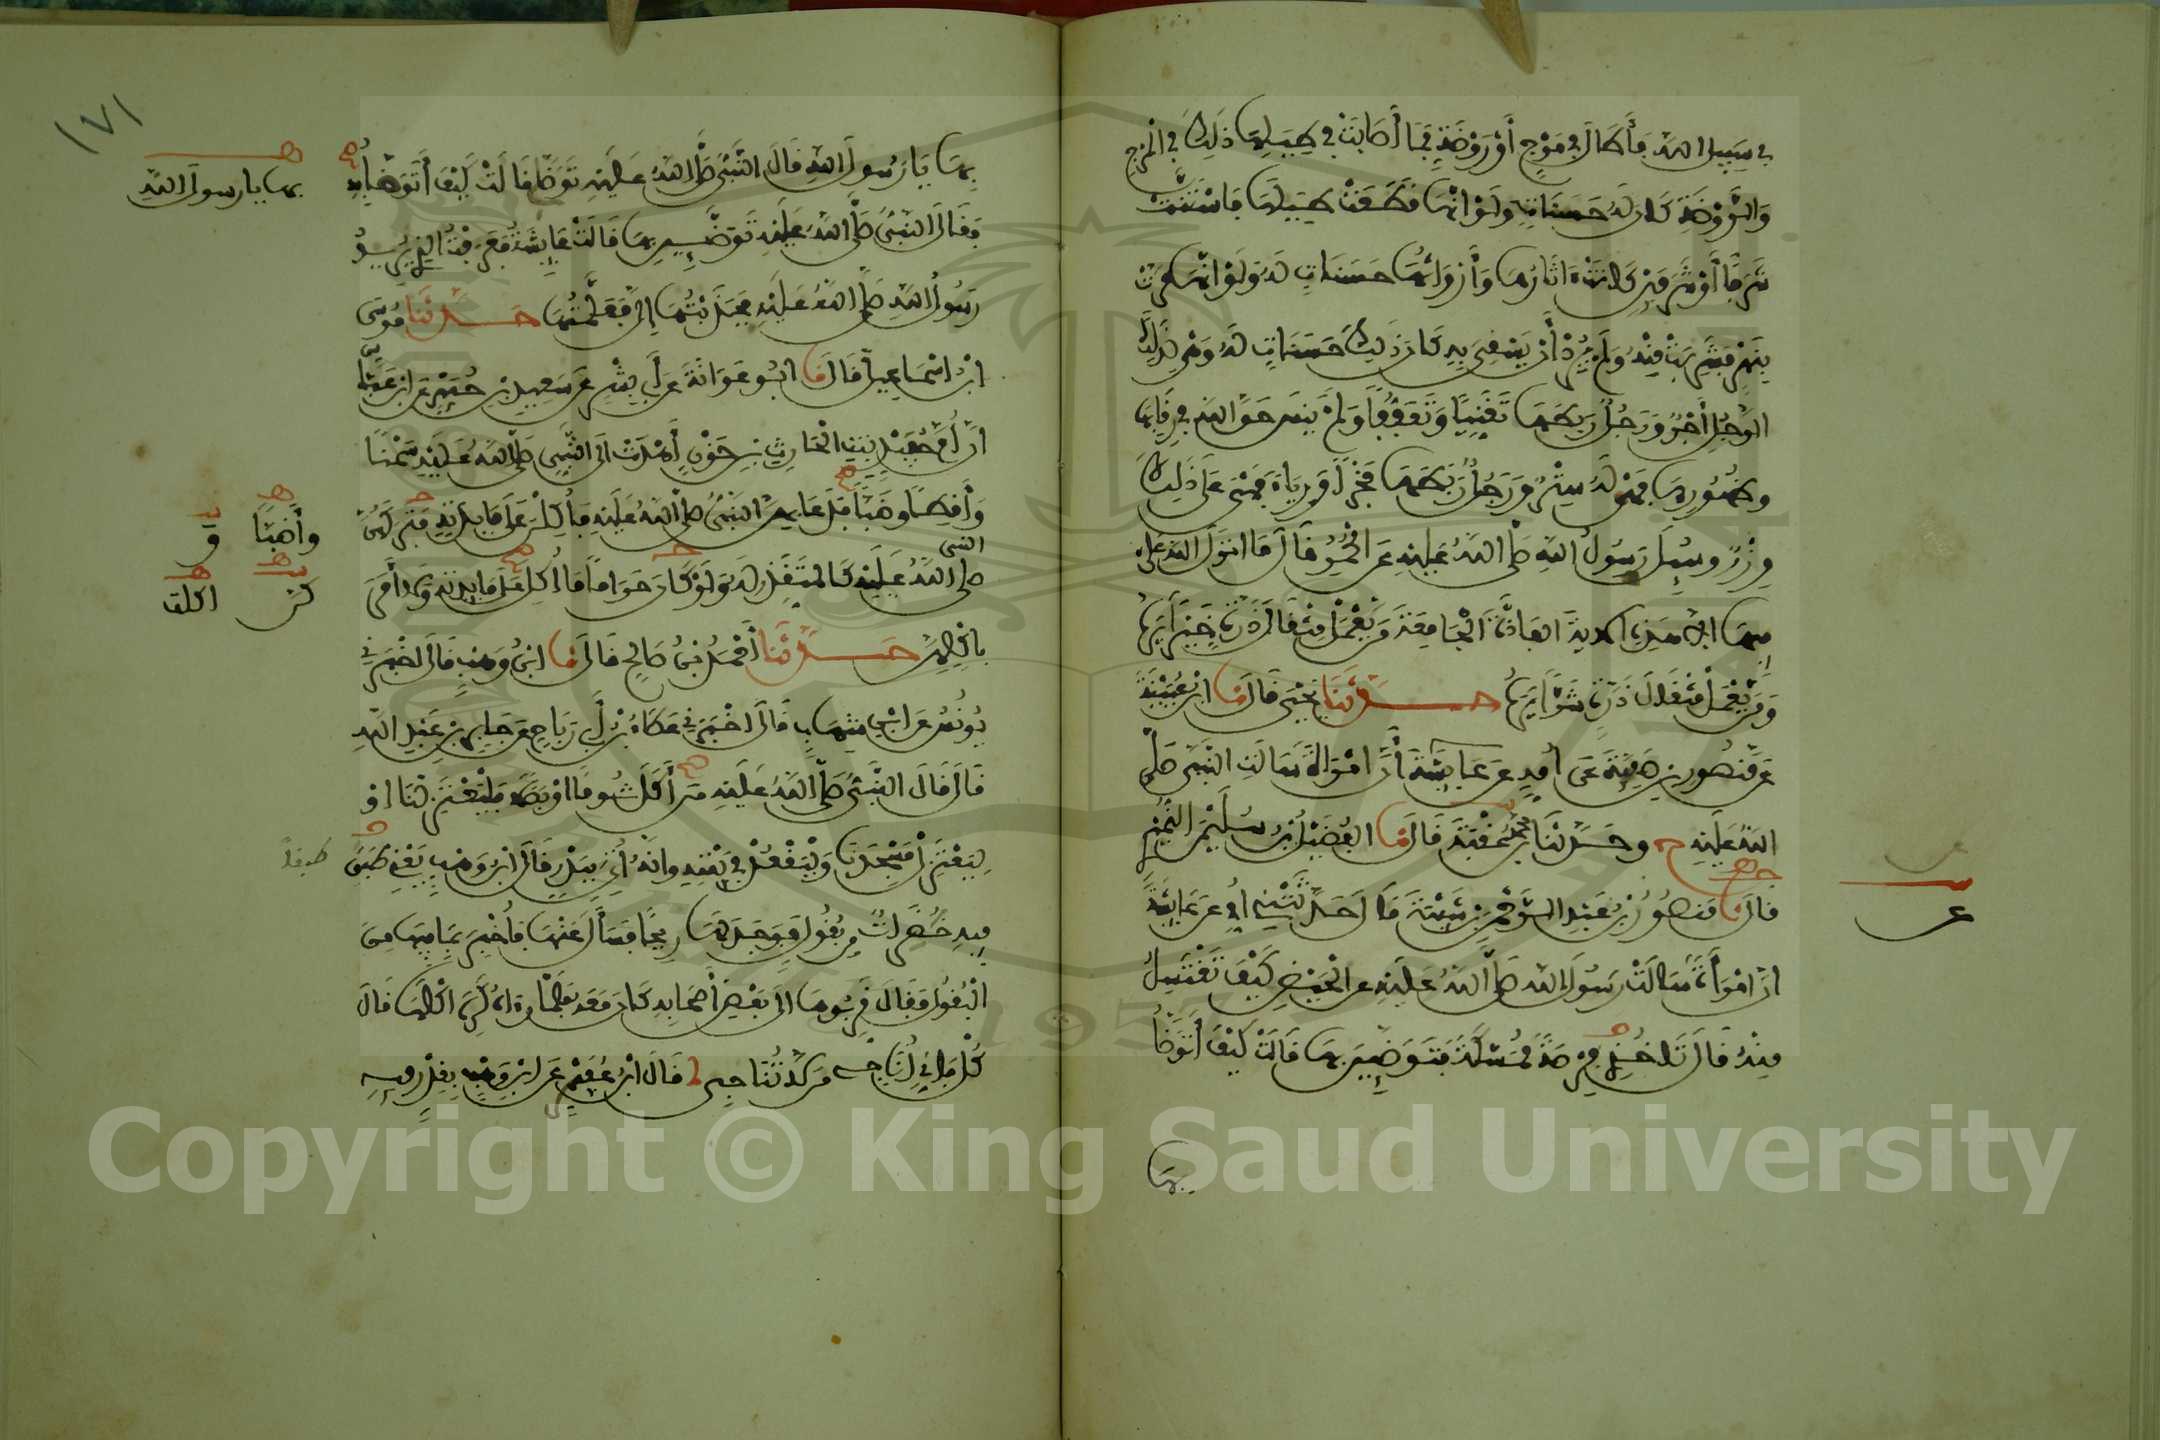 في سبيل الله فأطال في مرج أو روضة فما أصابت في طيلها ذلك في المرج
والروضة كان له حسنات ولو أنها قطعت طيلها فاستنت
شرفا أو شرفين كانت ءاثارها وأرواثها حسنات له ولو أنها مرت
بنهر فشربت منه ولم يرد أن يسقي به كان ذلك حسنات له وهي لذلك
الرجل أجر ورجل ربطها تغنيا وتعففا ولم ينس حق الله في رقابها
وظهورها فهي له ستر ورجل ربطها فخرا ورياء فهي على ذلك
وزر وسئل رسول الله صلى الله عليه عن الحمر قال ما أنزل الله علي
فيها إلا هذه الاية الفاذة الجامعة فمن يعمل مثقال ذرة خيرا يره
ومن يعمل مثقال ذرة شرا يره حدثنا يحيى قال نا ابن عيينة
عن منصور بن صفية عن أمه عن عائشة أن امرأة سألت النبي صلى
الله عليه ح وحدثنا محمد بن عقبة قال نا الفضيل بن سليمن النميري
قال نا منصور بن عبد الرحمن بن شيبة قال حدثتني أمي عن عائشة
ان امرأة سألت رسول الله صلى الله عليه عن الحيض كيف تغتسل
منه قال تاخذي فرصة ممسكة فتوضئين بها قالت كيف أتوضأ
بها
١٧١
بها يا رسول الله قال النبي صلى الله عليه توضئي قالت كيف أتوضأ به
بها يا رسول الله
فقال النبي صلى الله عليه توضئين بها قالت عايشة فعرفت الذي يريد
رسول الله صلى الله عليه فجذبتها إلي فعلمتها حدثنا موسى
ابن اسماعيل قال نا ابو عوانة عن أبي بشر عن سعيد بن جبير عن ابن عباس
ان أم حفيد بنت الحارث بن حزن أهدت الى النبي صلى الله عليه سمنا
وأقطا وضبا فدعا بهن النبي صلى الله عليه فأكلن على مايدته فتركهن
وأضبا
النبي
صلى الله عليه كالمتقذر له ولو كان حراما ما أكل على مايدته ولا أمر
باكلهن حدثنا أحمد بن صالح قال نا ابن وهب قال اخبرني
يونس عن ابن شهاب قال اخبرني عطاء بن أبي رباح عن جابر بن عبد الله
قال قال النبي صلى الله عليه من أكل ثوما او بصلا فليعتزلنا او
ليعتزل مسجدنا وليقعد في بيته وانه أتي ببدر قال ابن وهب يعني طبق
طبقا
فيه خضرات من بقول فوجد لها ريحا فسأل عنها فأخبر بما فيها من
البقول فقال قربوها الى بعض أصحابه كان معه فلما رءاه كره اكلها قال
كل فإني أناجي من لا تناجي قال ابن عفير عن ابن وهب بقدر فيه